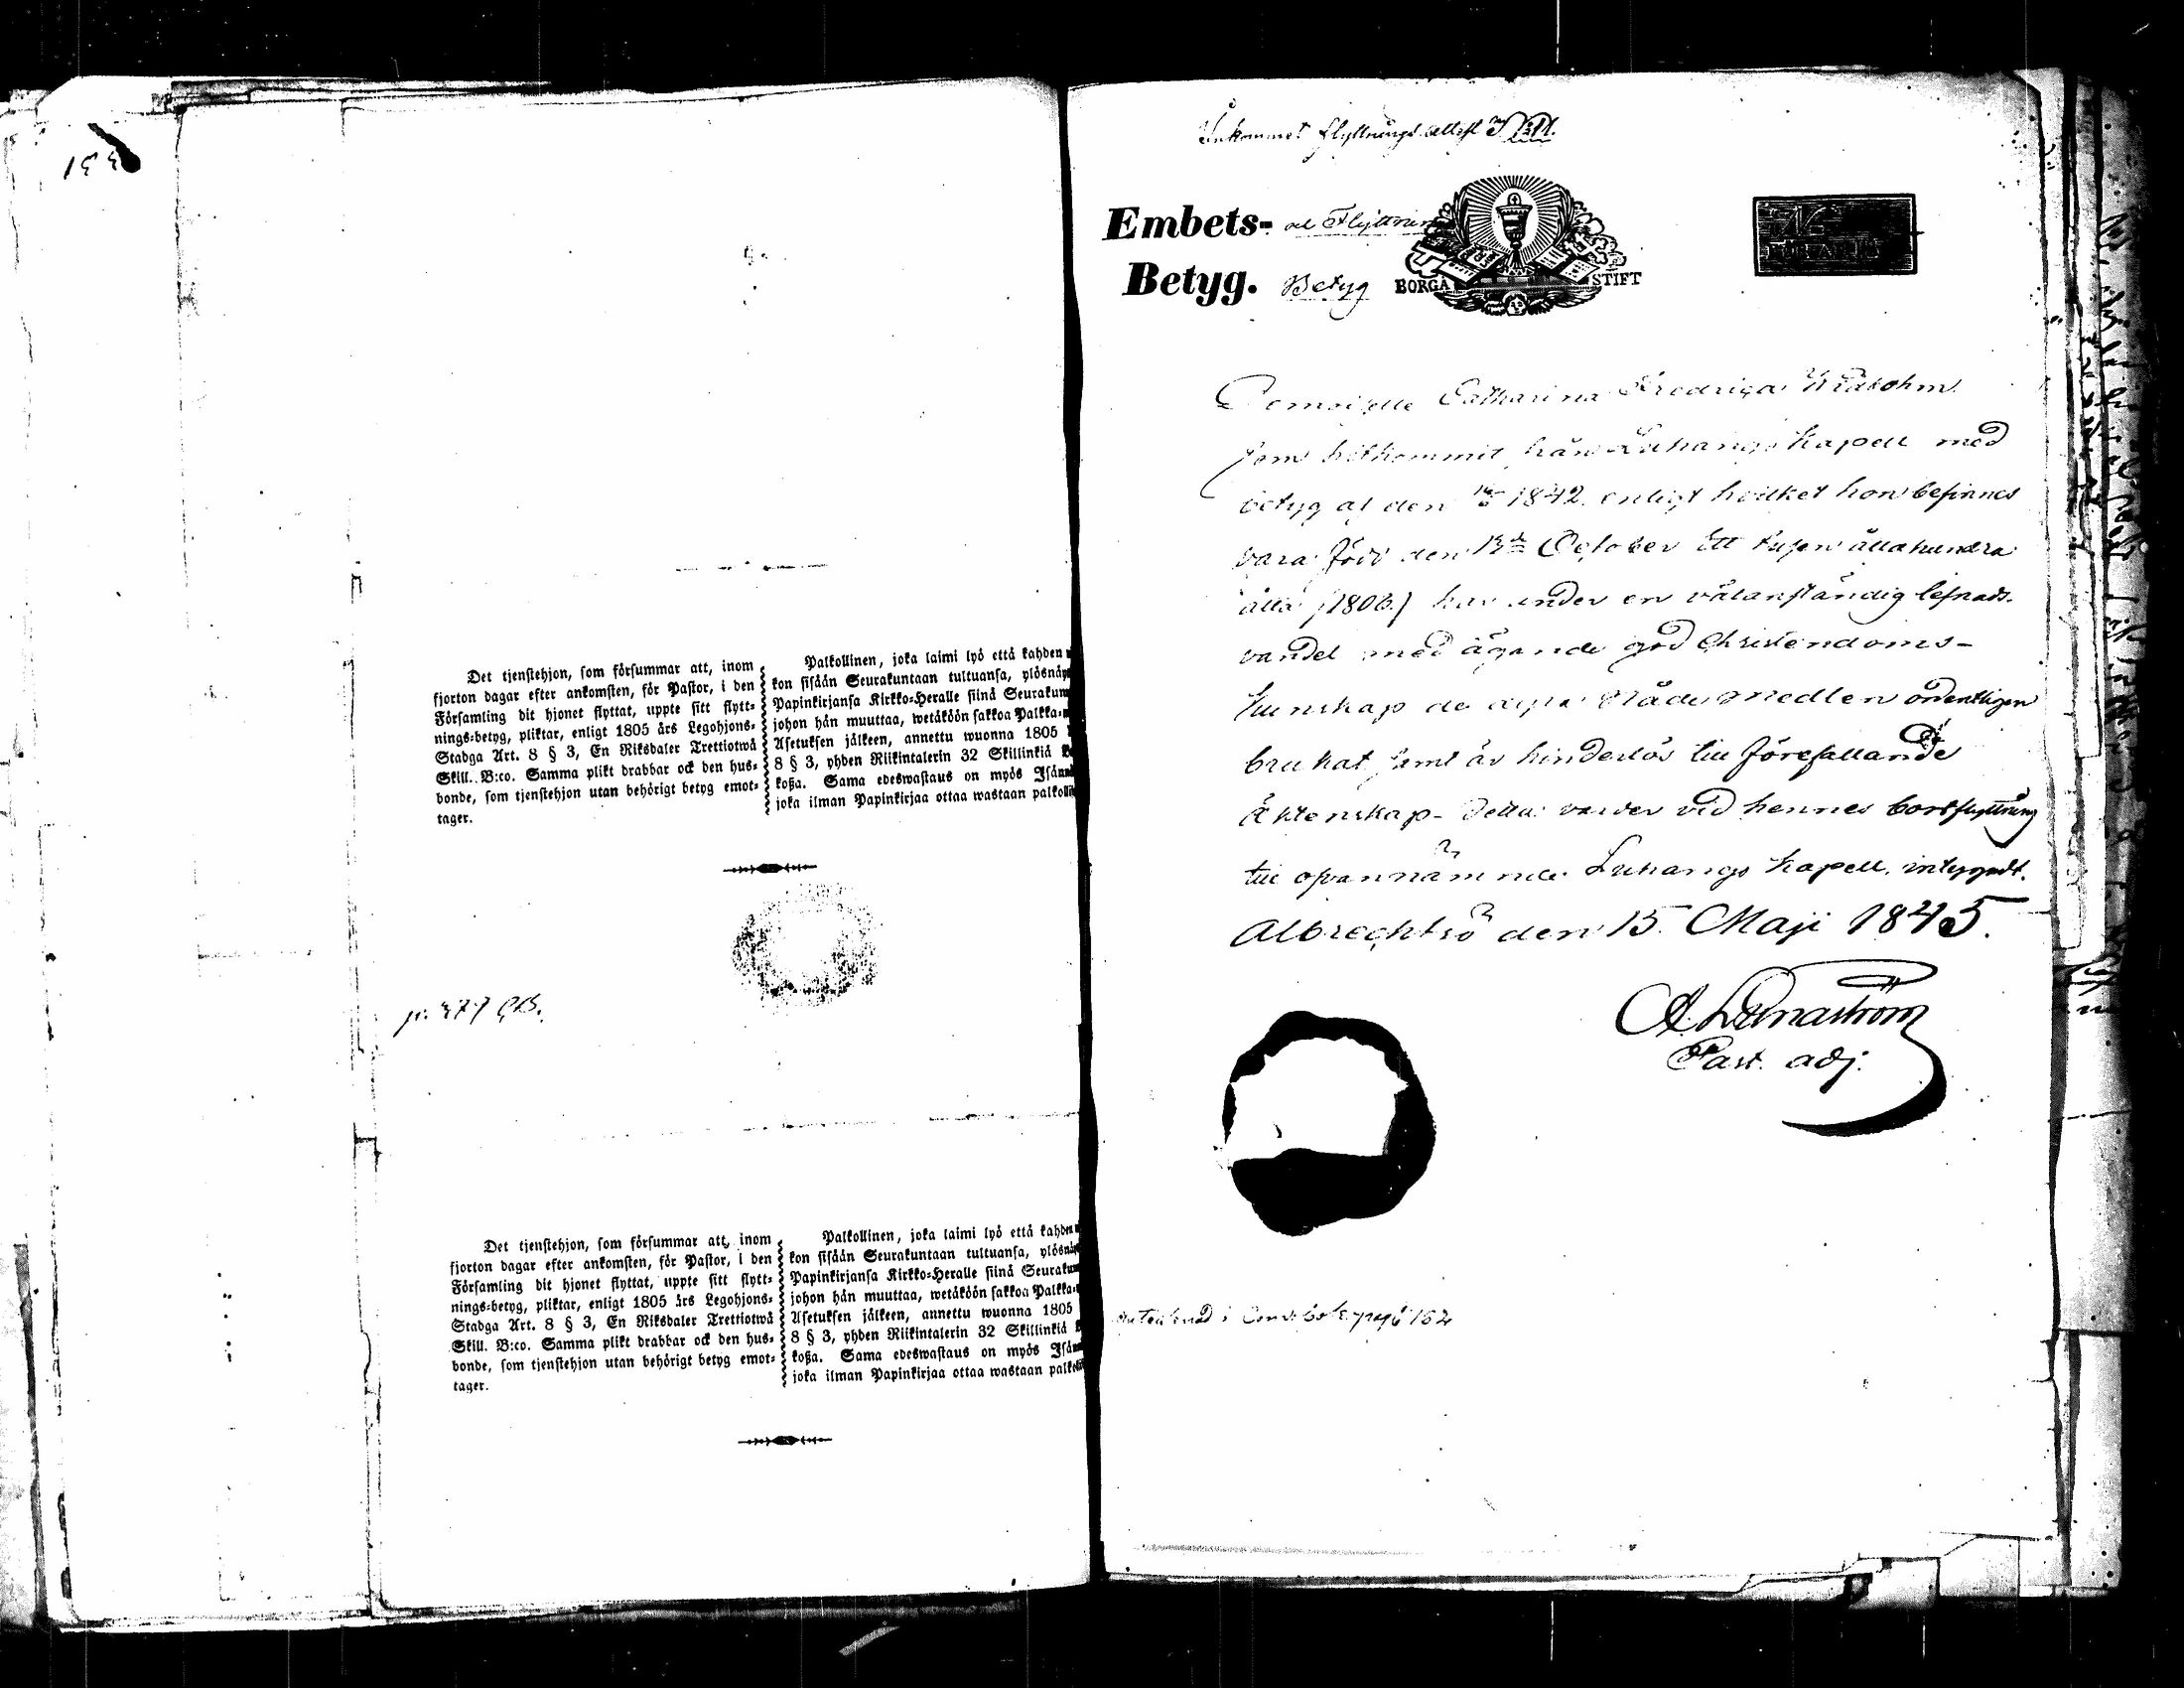 Det tjenstehjon, som försummar att, inom
fjorton dagar efter ankomsten, för Pastor, i den
Församling dit hjonet flyttat, uppte sitt flytt-
nings-betyg, pliktar, enligt 1805 års Legohjons-
Stadga Art. 8 § 3, En Riksdaler Trettiotwå
Skill. B:co. Samma plikt drabbar ock den hus-
bonde, som tjenstehjon utan behörigt betyg emot-
tager.
Palkollinen, joka laimi lyö että kahden
kon sisään Seurakuntaan tultuansa, ylösnäy
Papinkirjansa Kirkko-Heralle siinä Seurakun
johon hän muuttaa, wetäköön sakkoa Palkka-
Asetuksen jälkeen, annettu wuonna 1805
8 § 3, yhden Riikintalerin 32 Skillinkiä
koßa. Sama edeswastaus on myös Isän
joka ilman Papinkirjaa ottaa wastaan palkolli
p. 477
Det tjenstehjon, som försummar att, inom
fjorton dagar efter ankomsten, för Pastor, i den
Församling dit hjonet flyttat, uppte sitt flytt-
nings-betyg, pliktar, enligt 1805 års Legohjons-
Stadga Art. 8 § 3, En Riksdaler Trettiotwå
Skill. B:co. Samma plikt drabbar ock den hus-
bonde, som tjenstehjon utan behörigt betyg emot-
tager.
Palkollinen, joka laimi lyö että kahden
kon sisään Seurakuntaan tultuansa, ylösnäy
Papinkirjansa Kirkko-Heralle siinä Seurakun
johon hän muuttaa, wetäköön sakkoa Palkka-
Asetuksen jälkeen, annettu wuonna 1805
8 § 3, yhden Riikintalerin 32 Skillinkiä
koßa. Sama edeswastaus on myös Isän
joka ilman Papinkirjaa ottaa wastaan palkolli
Inkommet flyttningsattest
Embets- och Flyttnings
Betyg. Betyg
BORGÅ STIFT
Demoiselle Catharina Fredrica
som hitkommit från Luhango Kapell med
betyg af den 1842. enligt hvilket hon befinnes
vara född den 13de October Ett tusen åttahundra
åtta (1808.) har under en välanständig lefnads-
vandel med ägande god Christendoms-
kunskap de dyra Nådemedlen ordentligen
brukat samt är hinderlös till förefallande
Äktenskap. Detta varder vid hennes bortflyttning
till ofvannämnda Luhango Kapell. intygadt.
Albrechtsö den 15. Maji 1845.
Past. adj.
Antecknad i Com. bok. pag 152